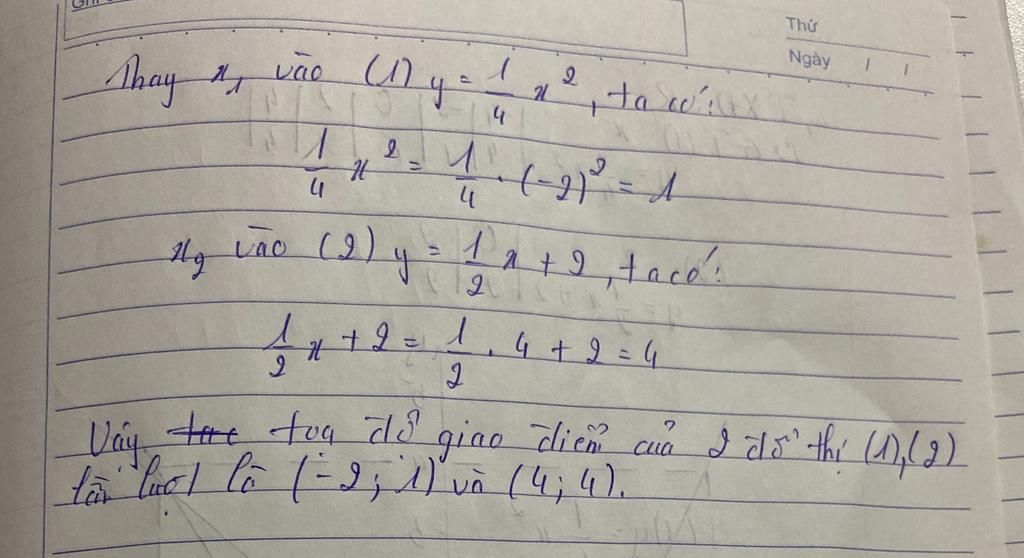 Thứ
Ngày / /
Thay x₁ vào (1) y = 1/4 x², ta có:
1/4 x² = 1/4 . (-2)² = 1
x₂ vào (2) y = 1/2 x + 2, ta có:
1/2 x + 2 = 1/2 . 4 + 2 = 4
Vậy toạ độ giao điểm của 2 đồ thị (1), (2)
lần lượt là (-2; 1) và (4; 4).